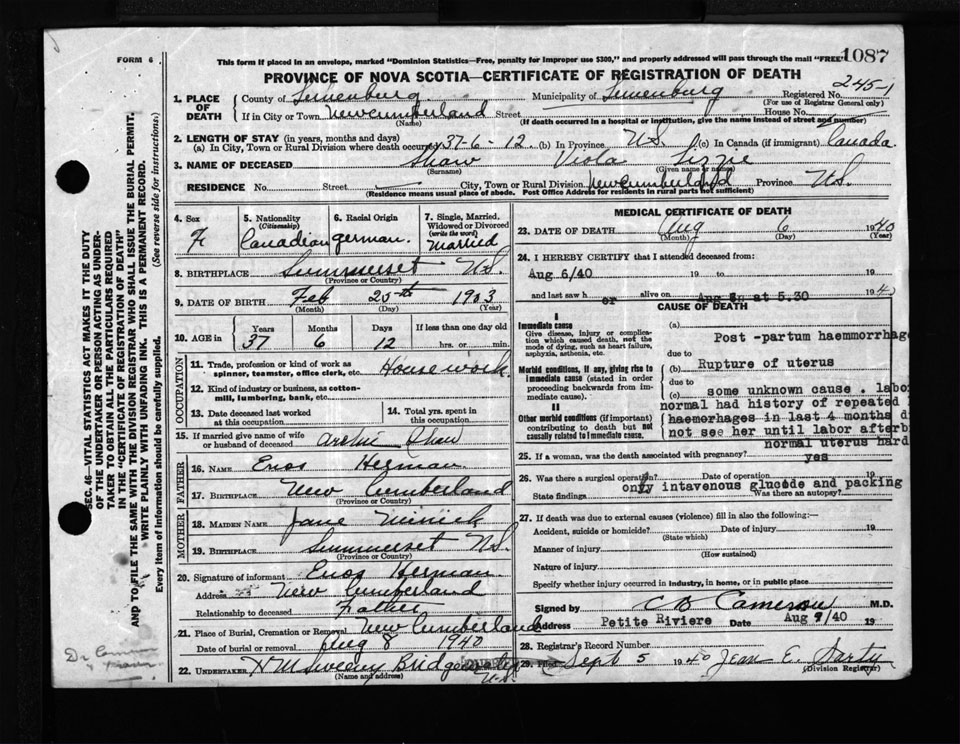 FORM 6
This form if placed in an envelope, marked "Dominion Statistics—Free, penalty for improper use $300," and properly addressed will pass through the mail "FREE"
1087
PROVINCE OF NOVA SCOTIA—CERTIFICATE OF REGISTRATION OF DEATH
245-1
1. PLACE OF DEATH
County of Lunenburg Municipality of Lunenburg Registered No.
(For use of Registrar General only)
If in City or Town New Cumberland Street House No.
(Name) (If death occurred in a hospital or institution, give the name instead of street and number)
2. LENGTH OF STAY (in years, months and days)
(a) In City, Town or Rural Division where death occurred 37-6-12. (b) In Province N.S. (c) In Canada (if immigrant) Canada.
3. NAME OF DECEASED Shaw Viola Lizzie
(Surname) (Given name or names)
RESIDENCE No. Street City, Town or Rural Division New Cumberland Province N.S.
(Residence means usual place of abode. Post Office Address for residents in rural parts not sufficient)
4. Sex
F
5. Nationality
(Citizenship)
Canadian
6. Racial Origin
german.
7. Single, Married, Widowed or Divorced
(write the word)
Married
8. BIRTHPLACE Summerset N.S.
(Province or Country)
9. DATE OF BIRTH Feb 25th 1903
(Month) (Day) (Year)
10. AGE in
Years Months Days If less than one day old
37 6 12 hrs. or min.
OCCUPATION
11. Trade, profession or kind of work as spinner, teamster, office clerk, etc. Housework.
12. Kind of industry or business, as cotton-mill, lumbering, bank, etc.
13. Date deceased last worked at this occupation
14. Total yrs. spent in this occupation
15. If married give name of wife or husband of deceased Archie Shaw
FATHER
16. NAME Enos Herman
17. BIRTHPLACE New Cumberland
(Province or Country)
MOTHER
18. MAIDEN NAME Jane
19. BIRTHPLACE Summerset N.S.
(Province or Country)
20. Signature of informant Enos Herman
Address New Cumberland
Relationship to deceased Father
21. Place of Burial, Cremation or Removal New Cumberland
Date of burial or removal Aug 8 1940
22. UNDERTAKER H M Sweeny Bridgewater N.S.
(Name and address)
MEDICAL CERTIFICATE OF DEATH
23. DATE OF DEATH Aug 6 1940
(Month) (Day) (Year)
24. I HEREBY CERTIFY that I attended deceased from:
Aug 6/40 19 to 19
and last saw h er alive on Aug 6n at 5.30 1940
CAUSE OF DEATH
I
Immediate cause
Give disease, injury or complication which caused death, not the mode of dying, such as heart failure, asphyxia, asthenia, etc.
Morbid conditions, if any, giving rise to immediate cause (stated in order proceeding backwards from immediate cause).
II
Other morbid conditions (if important) contributing to death but not causally related to immediate cause.
(a) Post -partum haemmorrhage
due to
(b) Rupture of uterus
due to
(c) some unknown cause . labo
normal had history of repeated
haemorhages in last 4 months d
not see her until labor afterb
normal uterus hard
25. If a woman, was the death associated with pregnancy? yes
26. Was there a surgical operation? Date of operation 19
State findings only intavenous glucode and packing
Was there an autopsy?
27. If death was due to external causes (violence) fill in also the following:—
Accident, suicide or homicide? Date of injury 19
(State which)
Manner of injury
(How sustained)
Nature of injury
Specify whether injury occurred in industry, in home, or in public place
Signed by C B Cameron M.D.
Address Petite Riviere Date Aug 9/40 19
28. Registrar's Record Number
29. Filed Sept 5 1940 Jean E. Sarty
(Division Registrar)
SEC. 46—VITAL STATISTICS ACT MAKES IT THE DUTY
OF THE UNDERTAKER OR PERSON ACTING AS UNDER-
TAKER TO OBTAIN ALL THE PARTICULARS REQUIRED
IN THE "CERTIFICATE OF REGISTRATION OF DEATH"
AND TO FILE THE SAME WITH THE DIVISION REGISTRAR WHO SHALL ISSUE THE BURIAL PERMIT.
WRITE PLAINLY WITH UNFADING INK. THIS IS A PERMANENT RECORD.
Every item of Information should be carefully supplied. (See reverse side for instructions).